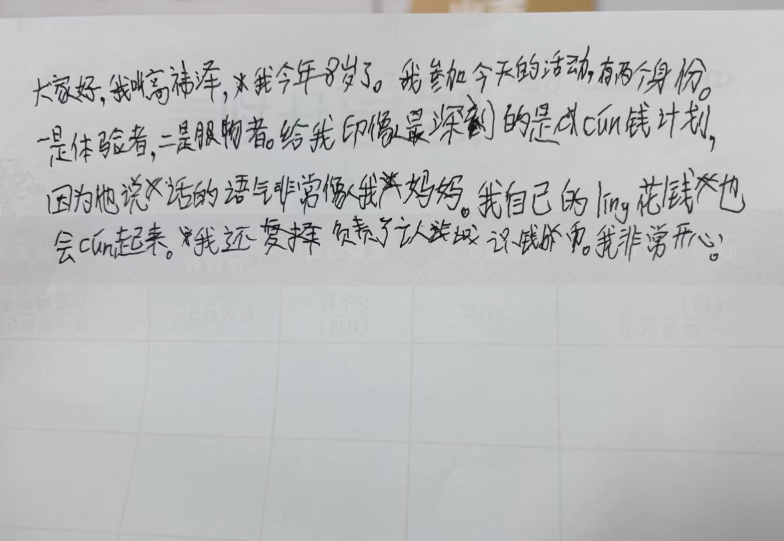 大家好,我叫高祎泽,我今年8岁了。我参加今天的活动,有两个身份。
一是体验者,二是服物者。给我印像最深刻的是cún钱计划,
因为他说话的语气非常像我妈妈。我自己的líng花钱也
会cún起来。我还负责了认识钱。我非常开心!